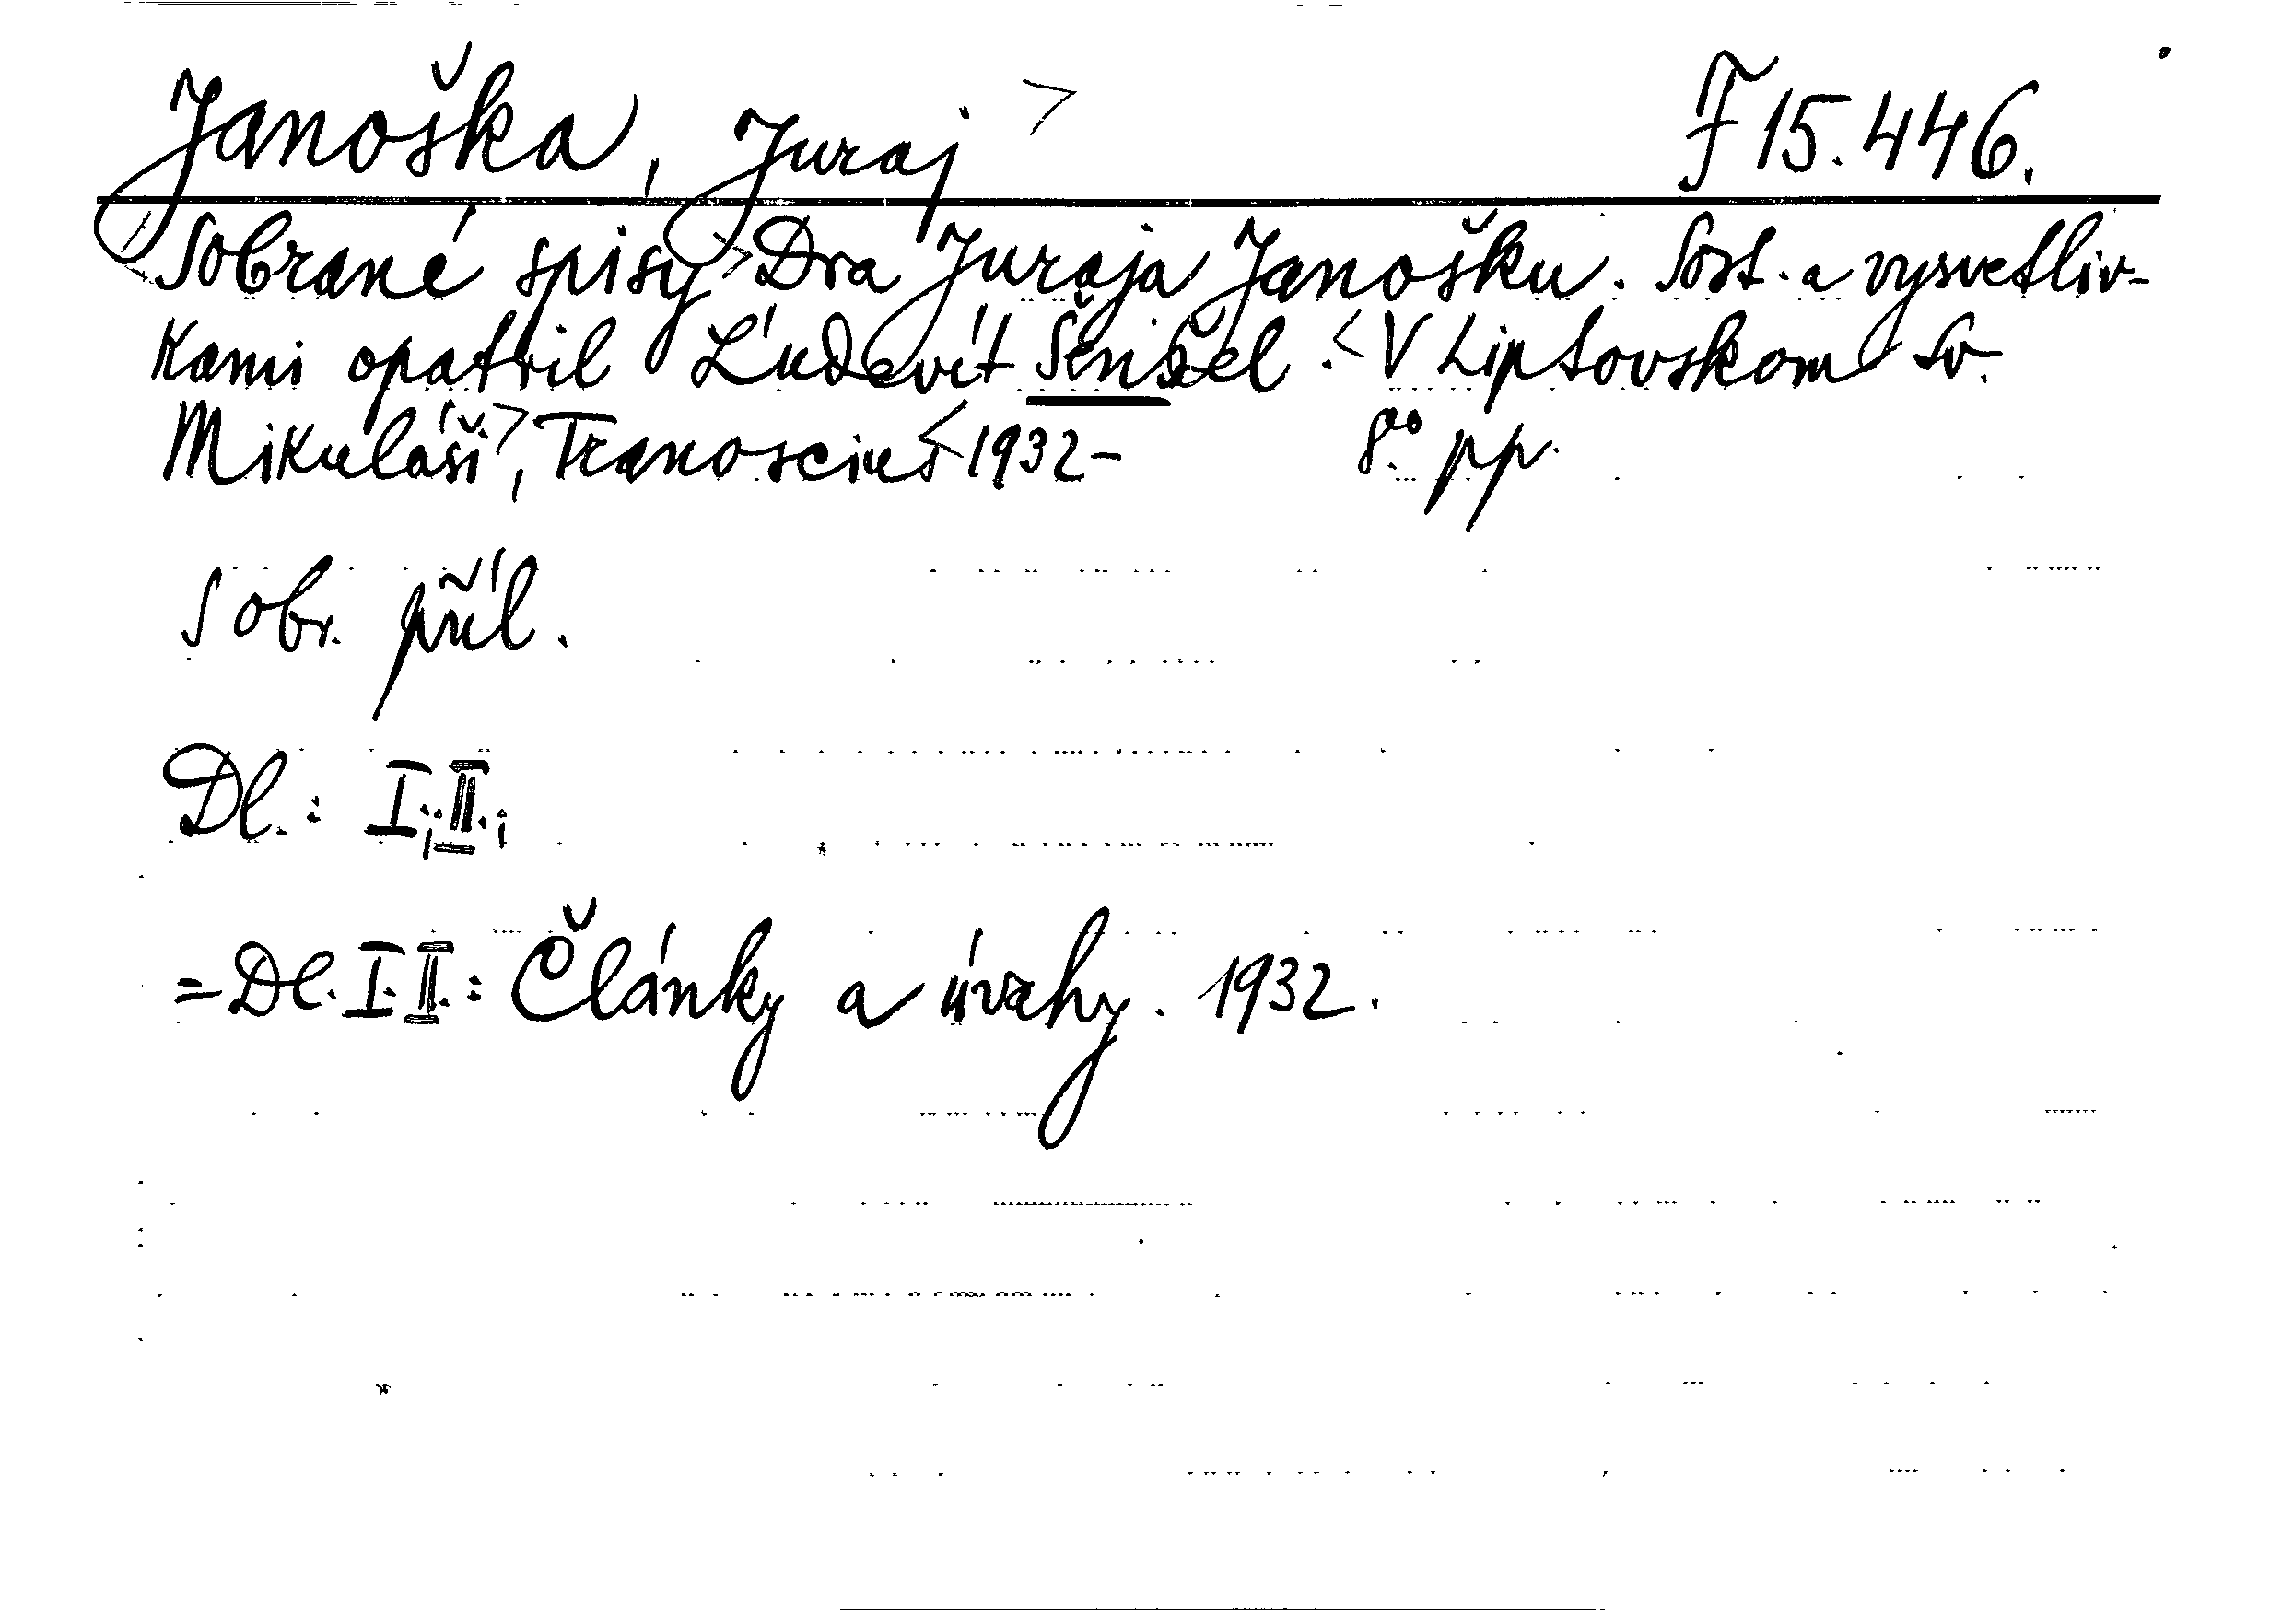 Janoška, Juraj > F 15.446.
<Sobrané spisy> Dra Juraja Janošku. Sost. a vysvetliv-
kami opatril Ľudevít Šenšel. <V Liptovskom Sv.
Mikuláši>, Tranoscius <1932- 8° pp.
S obr. příl.
Dl.: I., II.,
= Dl. I. II.: Články a úvahy. 1932.